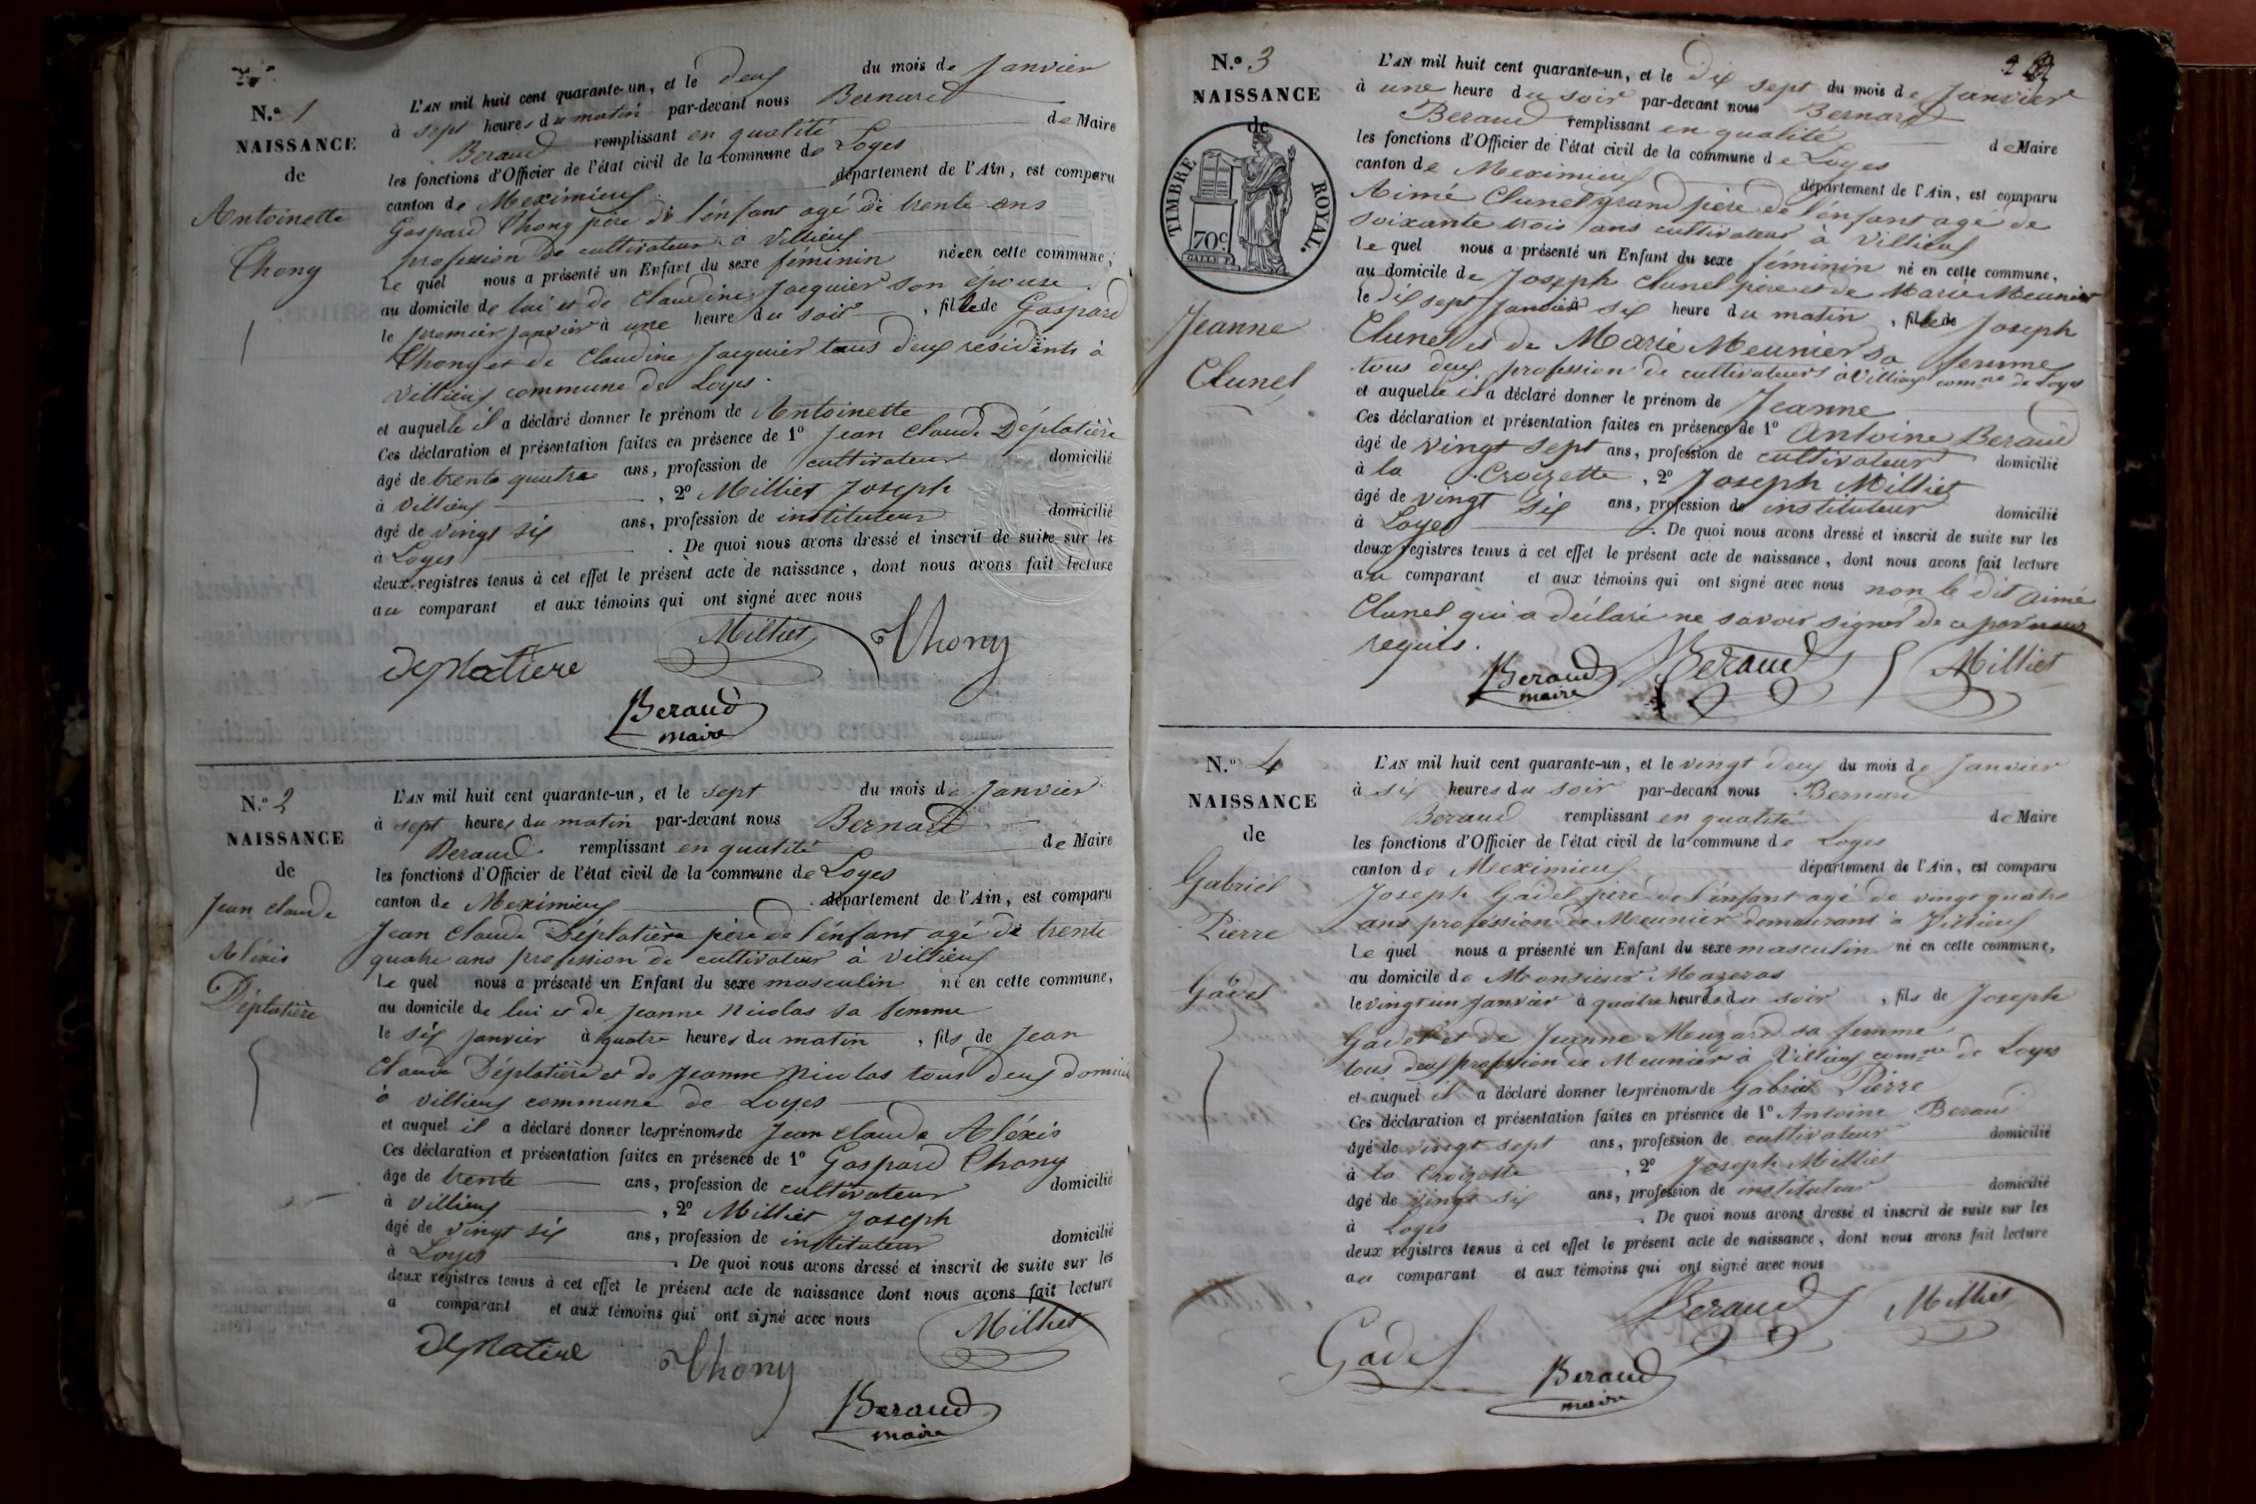 N.º 1
NAISSANCE
de
Antoinette
Thony
L'AN mil huit cent quarante-un, et le deux du mois de Janvier
à sept heures du matin par-devant nous Bernard
Beraud remplissant en qualité de Maire
les fonctions d'Officier de l'état civil de la commune de Loyes
canton de Meximieux département de l'Ain, est comparu
Gaspard Thony père de l'enfant agé de trente ans
profession de cultivateur à Villieux
Le quel nous a présenté un Enfant du sexe féminin né en cette commune,
au domicile de lui et de Claudine Jacquier son épouse
le premier janvier à une heure du soir, fille de Gaspard
Thony et de Claudine Jacquier tous deux résidents à
Villieux commune de Loyes.
et auquelle il a déclaré donner le prénom de Antoinette
Ces déclaration et présentation faites en présence de 1º Jean Claude Déplatière
âgé de trente quatre ans, profession de cultivateur domicilié
à Villieux, 2º Milliet Joseph
âgé de vingt six ans, profession de instituteur domicilié
à Loyes. De quoi nous avons dressé et inscrit de suite sur les
deux registres tenus à cet effet le présent acte de naissance, dont nous avons fait lecture
au comparant et aux témoins qui ont signé avec nous
Milliet Thony
deplatiere
Beraud
maire
N.º 2
NAISSANCE
de
Jean claude
Aléxis
Déplatière
L'AN mil huit cent quarante-un, et le sept du mois de Janvier
à sept heures du matin par-devant nous Bernard
Beraud remplissant en qualité de Maire
les fonctions d'Officier de l'état civil de la commune de Loyes
canton de Meximieux département de l'Ain, est comparu
Jean Claude Déplatière père de l'enfant agé de trente
quatre ans profession de cultivateur à Villieux
Le quel nous a présenté un Enfant du sexe masculin né en cette commune,
au domicile de lui et de Jeanne Nicolas sa femme
le six janvier à quatre heures du matin, fils de Jean
Claude Déplatière et de Jeanne Nicolas tous deux domicil
à Villieux commune de Loyes
et auquel il a déclaré donner les prénoms de Jean claude Aléxis
Ces déclaration et présentation faites en présence de 1º Gaspard Thony
âge de trente ans, profession de cultivateur domicilié
à Villieux, 2º Milliet Joseph
âgé de vingt six ans, profession de instituteur domicilié
à Loyes. De quoi nous avons dressé et inscrit de suite sur les
deux registres tenus à cet effet le présent acte de naissance dont nous avons fait lecture
a comparant et aux témoins qui ont signé avec nous
deplatiere Thony Milliet
Beraud
maire
N.º 3
NAISSANCE
de
TIMBRE ROYAL.
70c
Jeanne
Clunel
2
L'AN mil huit cent quarante-un, et le dix sept du mois de Janvier
à une heure du soir par-devant nous Bernard
Beraud remplissant en qualité de Maire
les fonctions d'Officier de l'état civil de la commune de Loyes
canton de Meximieux département de l'Ain, est comparu
Aimé Clunel grand père de l'énfant agé de
soixante trois ans cultivateur à Villieux
Le quel nous a présenté un Enfant du sexe féminin né en cette commune,
au domicile de Joseph Clunel père et de Marie Meunier
le dix sept Janvier à six heure du matin, fille de Joseph
Clunel et de Marie Meunier sa femme
tous deux profession de cultivateurs à Villieux comne de Loyes
et auquelle il a déclaré donner le prénom de Jeanne
Ces déclaration et présentation faites en présence de 1º Antoine Beraud
âgé de vingt sept ans, profession de cultivateur domicilié
à la Croizette, 2º Joseph Milliet
âgé de vingt six ans, profession de instituteur domicilié
à Loyes. De quoi nous avons dressé et inscrit de suite sur les
deux registres tenus à cet effet le présent acte de naissance, dont nous avons fait lecture
au comparant et aux témoins qui ont signé avec nous non le dit aimé
Clunel qui a déclaré ne savoir signer de ce par nous
requis.
Beraud Beraud Milliet
maire
N.º 4
NAISSANCE
de
Gabriel
Pierre
Gadel
L'AN mil huit cent quarante-un, et le vingt deux du mois de Janvier
à six heures du soir par-devant nous Bernard
Beraud remplissant en qualité de Maire
les fonctions d'Officier de l'état civil de la commune de Loyes
canton de Meximieux département de l'Ain, est comparu
Joseph Gadel père de l'énfant agé de vingt quatre
ans profession de Meunier demeurant à Villieux
Le quel nous a présenté un Enfant du sexe masculin né en cette commune,
au domicile de Monsieur Mazeras
le vingt un janvier à quatre heures du soir, fils de Joseph
Gadel et de Jeanne Meuzard sa femme
tous deux profession de Meunier à Villieux comne de Loyes
et auquel il a déclaré donner les prénoms de Gabriel Pierre
Ces déclaration et présentation faites en présence de 1º Antoine Beraud
âgé de vingt sept ans, profession de cultivateur domicilié
à la Croizette, 2º Joseph Milliet
âgé de vingt six ans, profession de instituteur domicilié
à Loyes. De quoi nous avons dressé et inscrit de suite sur les
deux registres tenus à cet effet le présent acte de naissance, dont nous avons fait lecture
au comparant et aux témoins qui ont signé avec nous
Gadel Beraud Milliet
Beraud
maire